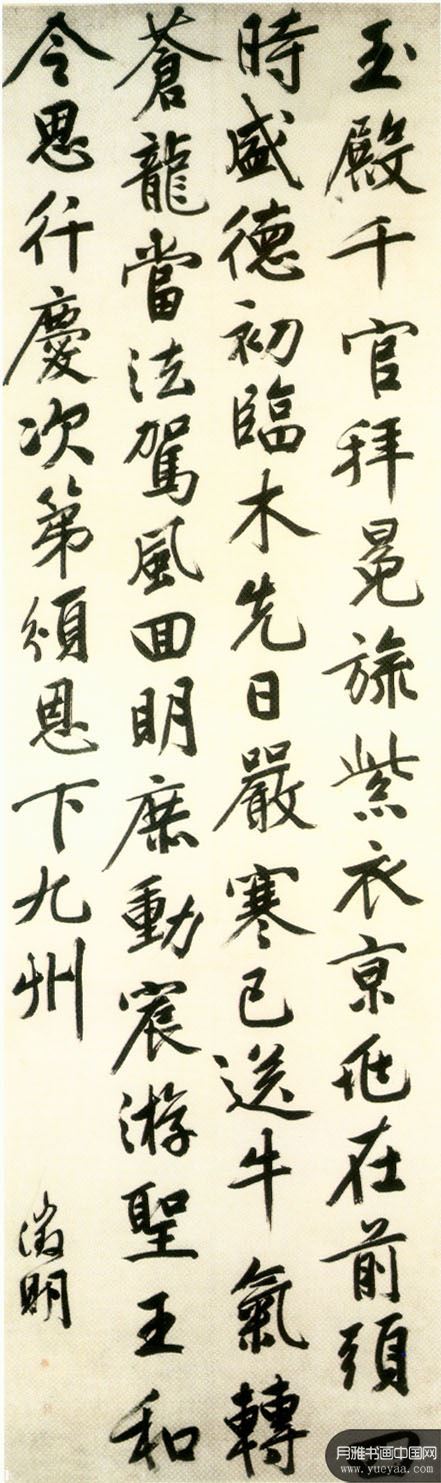 玉殿千官拜冕旒紫衣京兆在前頭四
時盛德初臨木先日嚴寒已送牛氣轉
蒼龍當法駕風回明庶動宸游聖王和
令思行慶次第頒恩下九州
徵明
月雅书画中国网
www.yueyaa.com